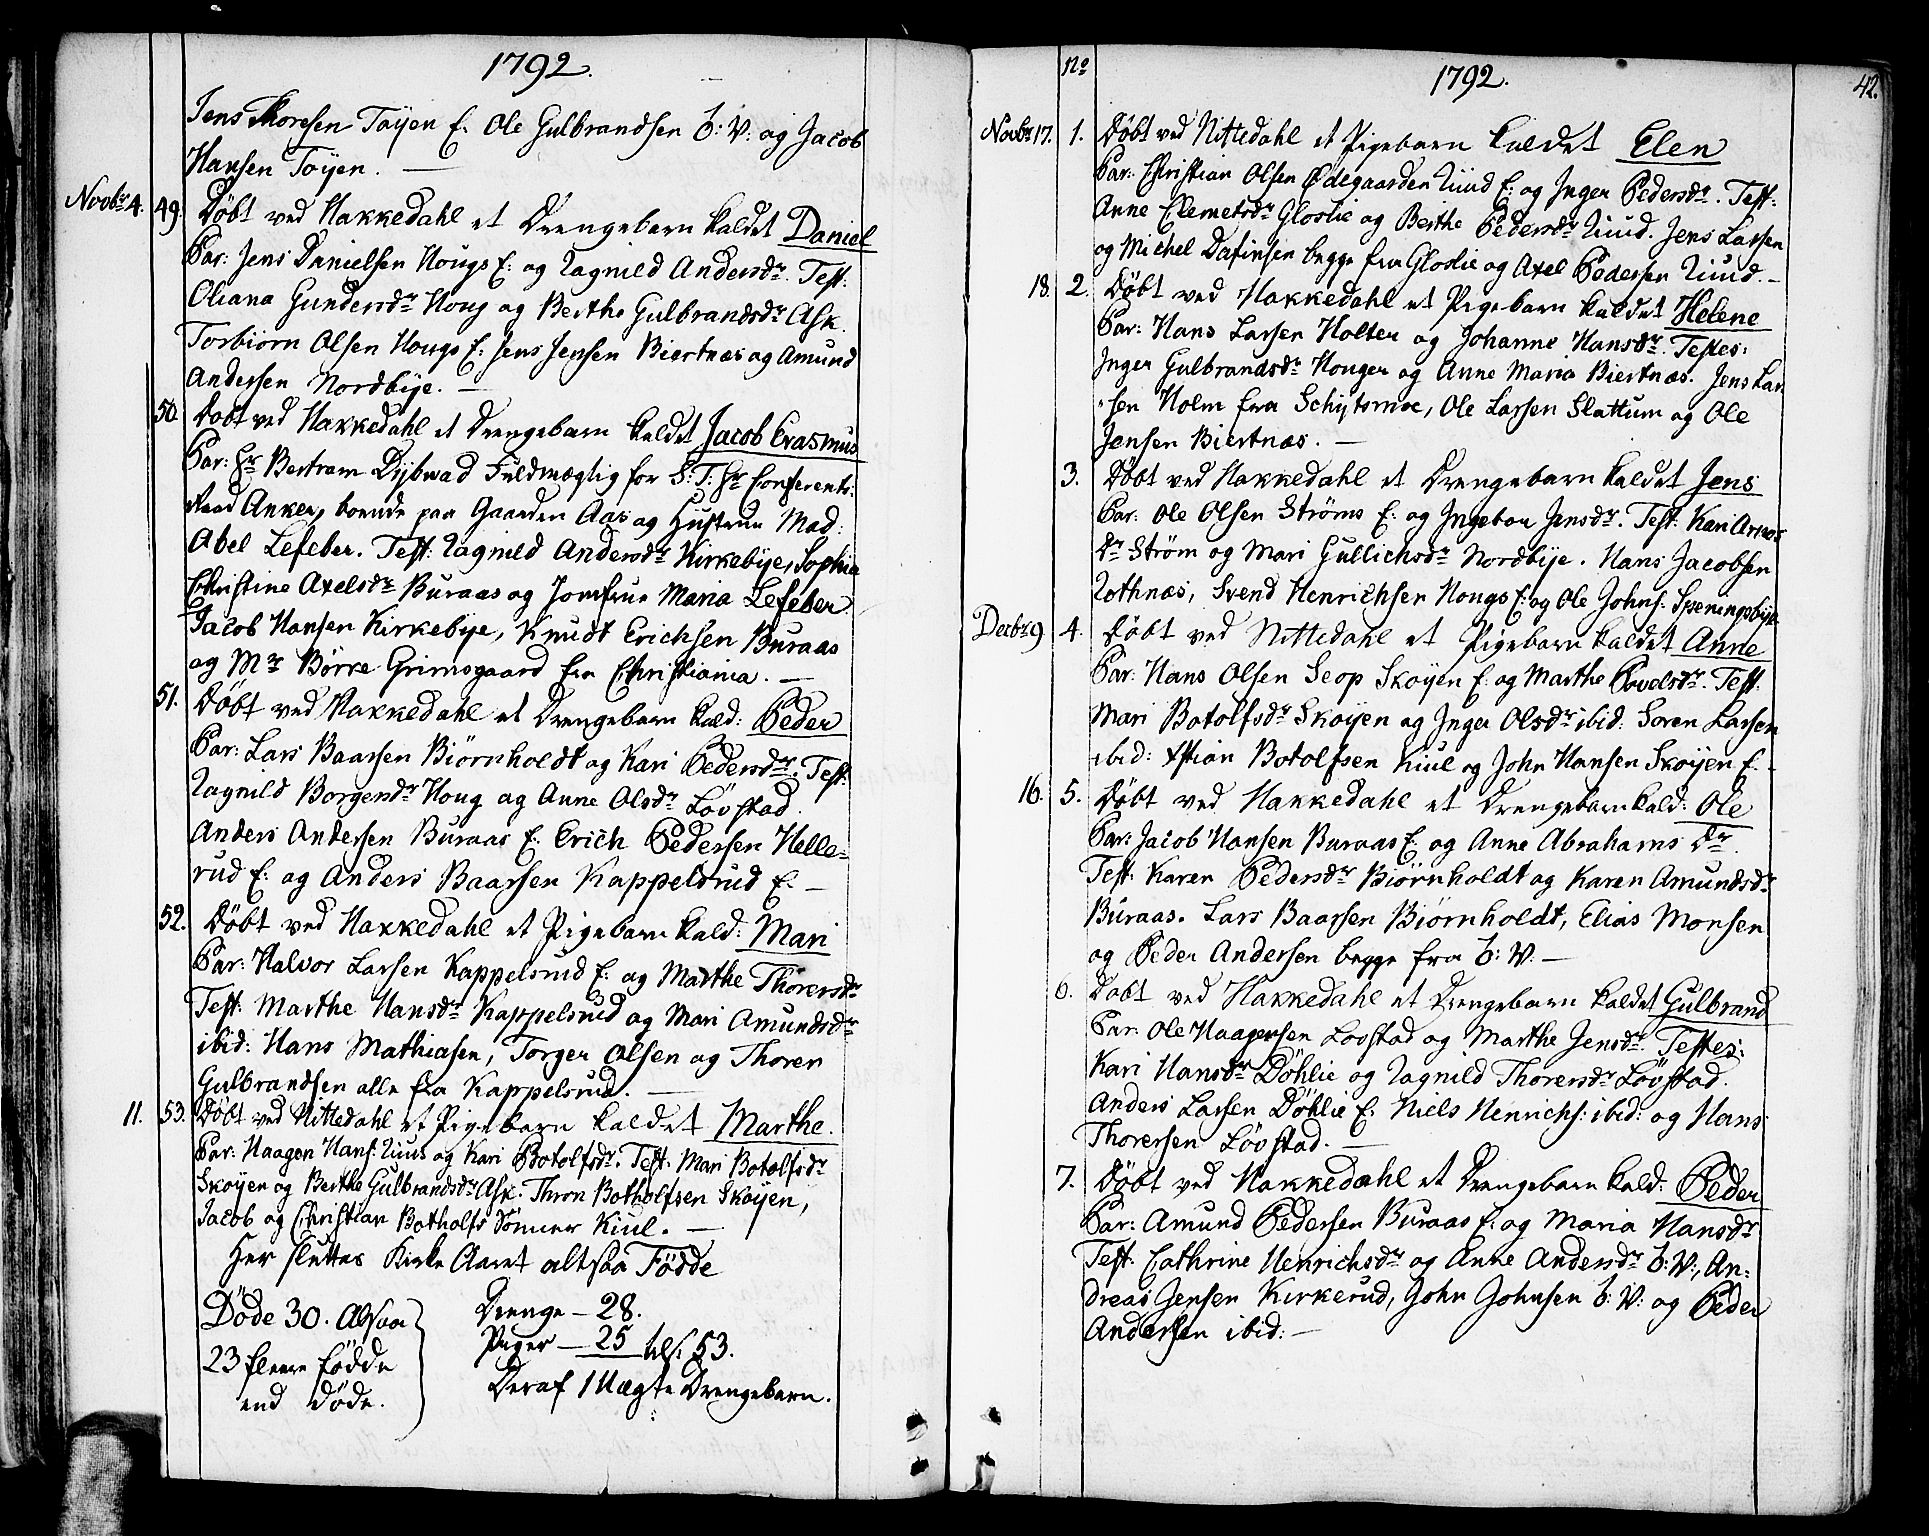 1792.
Jens Thoresen Töyen E. Ole Gulbrandsen b: V: og Jacob
Hansen Töyen. —
Novbr 4. 49. Döbt ved Hakkedahl et Drengebarn kaldet Daniel
Par: Jens Danielsen Hougs E: og Ragnild Andersdr. Test:
Oliana Gundersdr Houg og Berthe Gulbrandsdr Ask.
Torbiörn Olsen Hougs E: Jens Jensen Biertnæs og Amund
Andersen Nordbije. —
50. Döbt ved Hakkedahl et Drengebarn kaldet Jacob Erasmus
Par: Hr Bertram Dybwad Fuldmægtig for S: T: Hr Conferents:
Raad Anker, boende paa Gaarden Aas og Hustrue Mad:
Abel Lefeber. Test: Ragnild Andersdr Kirkebije, Sophia
Christine Axelsdr Buraas og Jomfrue Maria Lefeber
Jacob Hansen Kirkebije, Knudt Erichsen Buraas
og Mr Börre Grimsgaard fra Christiania. —
51. Döbt ved Hakkedahl et Drengebarn kald: Peder
Par: Lars Baarsen Biörnholdt og Kari Pedersdr. Test:
Ragnild Borgersdr Houg og Anne Olsdr Lövstad.
Anders Andersen Buraas E. Erich Pedersen Helle=
rud E: og Anders Baarsen Kappelsrud E. —
52. Döbt ved Hakkedahl et Pigebarn kald: Mari
Par: Halvor Larsen Kappelsrud E: og Marthe Thorersdr
Test: Marthe Hansdr Kappelsrud og Mari Amundsdr
ibid: Hans Mathiasen, Torger Olsen og Thoren
Gulbrandsen alle fra Kappelsrud. —
11. 53. Döbt ved Nittedahl et Pigebarn kaldet Marthe.
Par: Haagen Hans: Ruus og Kari Botolfsdr. Test: Mari Botolfsdr
Sköyen og Berthe Gulbrandsdr Ask. Thron Botholfsen Skoyen,
Jacob og Christian Botholfs Sönner Kiul. —
Her sluttes Kirke Aaret altsaa Födde
Döde 30. Altsaa
23 fleere födde
end döde.
Drenge — 28.
Piger — 25 tils. 53.
Deraf 1 Uægte Drengebarn.
No
1792.
42.
Novbr 17. 1. Döbt ved Nittedahl et Pigebarn kaldet Elen
Par: Christian Olsen Ødegaarden Ruud E: og Inger Pedersdr. Test:
Anne Clemetsdr Gloslie og Berthe Pedersdr Ruud. Jens Larsen
og Michel Dafinsen begge fra Gloslie og Axel Pedersen Ruud. —
18. 2. Döbt ved Hakkedahl et Pigebarn kaldet Helene
Par: Hans Larsen Holter og Johanne Hansdr. Testes:
Inger Gulbrandsdr Houger og Anne Maria Biertnæs. Jens Lar
=sen Holm fra Schytsmoe, Ole Larsen Slattum og Ole
Jensen Biertnæs. —
3. Döbt ved Hakkedahl et Drengebarn kaldet Jens
Par: Ole Olsen Ströms E: og Ingebor Jensdr. Test: Kari Arnes
Dr Ström og Mari Gullichsdr Nordbije. Hans Jacobsen
Rothnæs, Svend Henrichsen Hougs E: og Ole Johns: Speningsbije
Decbr 9 4. Döbt ved Nittedahl et Pigebarn kaldet Anne
Par: Hans Olsen Seop Skoyen E: og Marthe Povelsdr. Test:
Mari Botolfsdr Skoyen og Inger Olsdr ibid: Soren Larsen
ibid: Xstian Botolfsen Kiul og John Hansen Skoyen E. —
16. 5. Döbt ved Hakkedahl et Drengebarn kald: Ole
Par: Jacob Hansen Buraas E: og Anne Abrahams Dr.
Test: Karen Pedersdr Biörnholdt og Karen Amundsdr
Buraas. Lars Baarsen Biörnholdt, Elias Monsen
og Peder Andersen begge fra b: V. —
6. Döbt ved Hakkedahl et Drengebarn kaldet Gulbrand
Par: Ole Haagensen Lovstad og Marthe Jensdr. Testes:
Kari Hansdr Döhlie og Ragnild Thorersdr Lövstad.
Anders Larsen Döhlie E. Niels Henrichs: ibid: og Hans
Thorersen Lövstad. —
7. Döbt ved Hakkedahl et Drengebarn kald: Peder
Par: Amund Pedersen Buraas E: og Maria Hansdr
Test: Cathrine Henrichsdr og Anne Andersdr b: V:, An=
dreas Jensen Kirkerud, John Johnsen b: V: og Peder
Andersen ibid: —